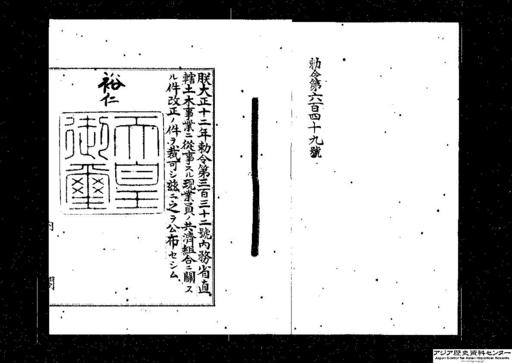 勅令第六百四十九號
朕大正十二年勅令第三百三十二號内務省直
轄土木事業ニ從事スル現業員ノ共濟組合ニ關ス
ル件改正ノ件ヲ裁可シ茲ニ之ヲ公布セシム
裕仁
天皇
御璽
内閣
アジア歴史資料センター
Japan Center for Asian Historical Records